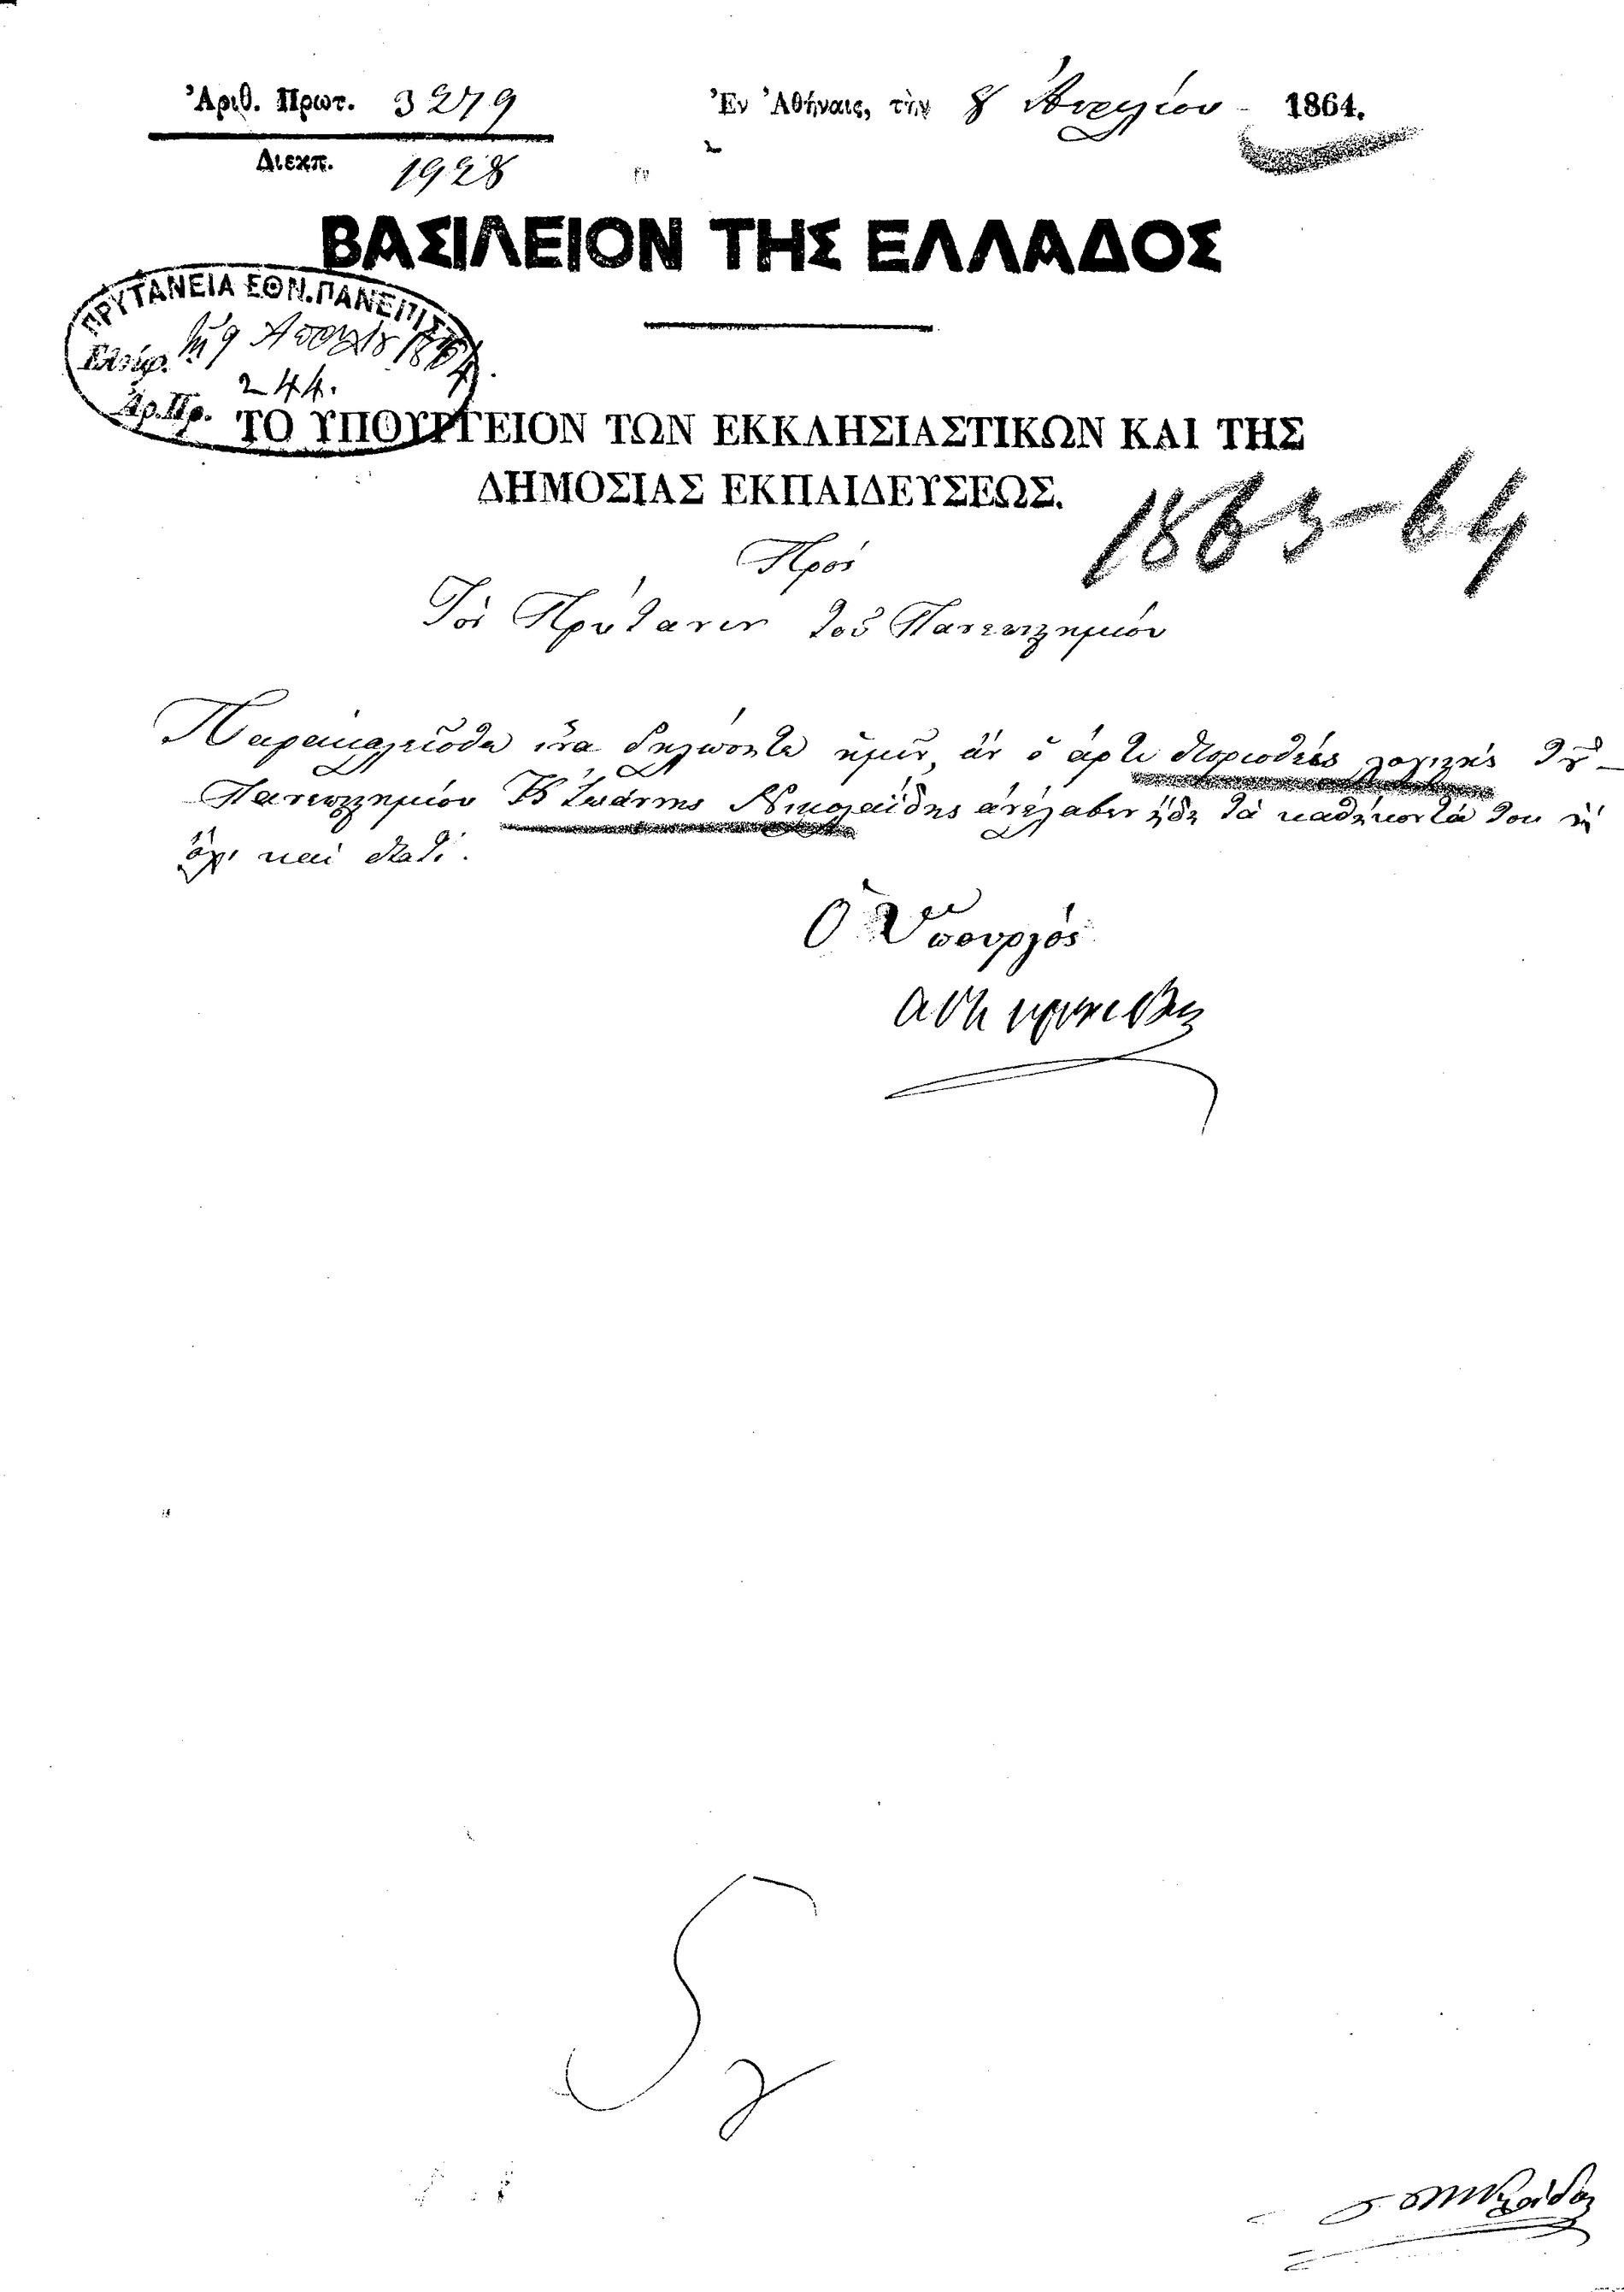 Ἀριθ. Πρωτ. 3279
Διεκπ. 1928
Ἐν Ἀθήναις, τὴν 8 Ἀπριλίου 1864.
ΒΑΣΙΛΕΙΟΝ ΤΗΣ ΕΛΛΑΔΟΣ
ΠΡΥΤΑΝΕΙΑ ΕΘΝ. ΠΑΝΕΠΙΣΤ
Ἐλήφ. τῇ 9 Ἀπριλίου 1864
Ἀρ. Πρ. 244.
ΤΟ ΥΠΟΥΡΓΕΙΟΝ ΤΩΝ ΕΚΚΛΗΣΙΑΣΤΙΚΩΝ ΚΑΙ ΤΗΣ
ΔΗΜΟΣΙΑΣ ΕΚΠΑΙΔΕΥΣΕΩΣ.
1863-64
Πρὸς
Τὸν Πρύτανιν τοῦ Πανεπιστημίου
Παρακαλεῖσθε ἵνα δηλώσητε ἡμῖν, ἂν ὁ ἄρτι διορισθεὶς λογιστὴς τοῦ
Πανεπιστημίου Κ Ἰωάννης Νικολαΐδης ἀνέλαβεν ἤδη τὰ καθήκοντά του ἢ
ὄχι καὶ διατί.
Ὁ Ὑπουργὸς